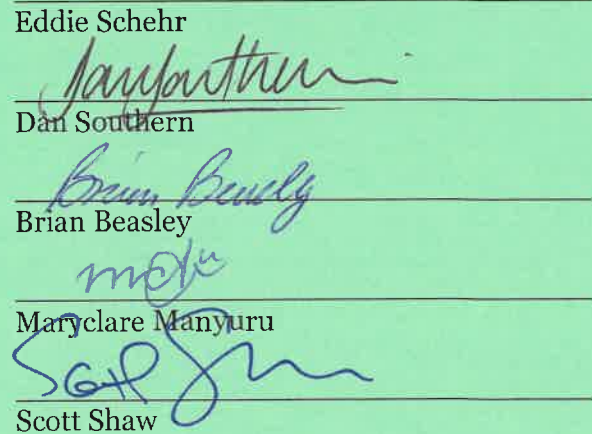 Eddie Schehr
Dan Southern
Brian Beasley
Brian Beasley
Maryclare Manyuru
Scott Shaw
Scott Shaw